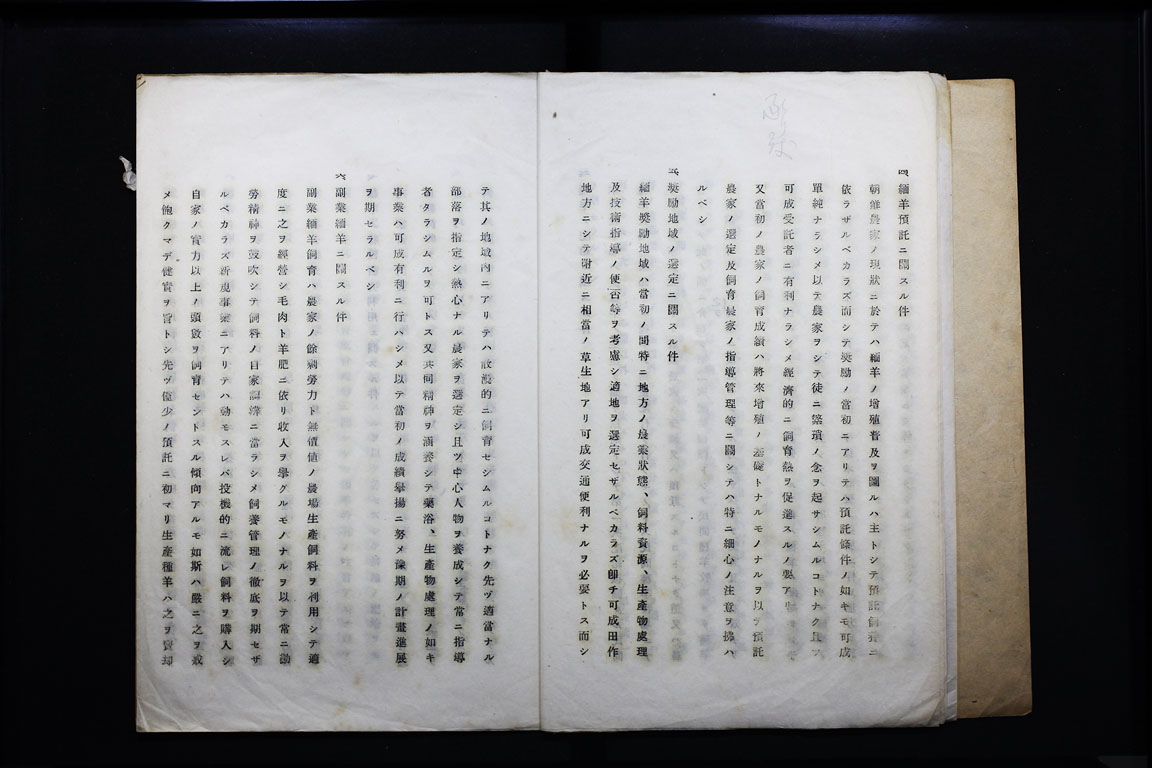 四、緬羊預託ニ關スル件
朝鮮農家ノ現狀ニ於テハ緬羊ノ增殖普及ヲ圖ルハ主トシテ預託飼養ニ
依ラザルベカラズ而シテ奬勵ノ當初ニアリテハ預託條件ノ如キモ可成
單純ナラシメ以テ農家ヲシテ徒ニ繁瑣ノ念ヲ起サシムルコトナク且ツ
可成受託者ニ有利ナラシメ經濟的ニ飼育熱ヲ促進スルノ要アリ
又當初ノ農家ノ飼育成績ハ將來增殖ノ基礎トナルモノナルヲ以テ預託
農家ノ選定及飼育農家ノ指導管理等ニ關シテハ特ニ細心ノ注意ヲ拂ハ
ルベシ
五、奬勵地域ノ選定ニ關スル件
緬羊奬勵地域ハ當初ノ間特ニ地方ノ農業狀態、飼料資源、生產物處理
及技術指導ノ便否等ヲ考慮シ適地ヲ選定セザルベカラズ卽チ可成田作
地方ニシテ附近ニ相當ノ草生地アリ可成交通便利ナルヲ必要トス而シ
テ其ノ地域內ニアリテハ散漫的ニ飼育セシムルコトナク先ヅ適當ナル
部落ヲ指定シ熱心ナル農家ヲ選定シ且ツ中心人物ヲ養成シテ常ニ指導
者タラシムルヲ可トス又共同精神ヲ涵養シテ藥浴、生產物處理ノ如キ
事業ハ可成有利ニ行ハシメ以テ當初ノ成績擧揚ニ努メ豫期ノ計畫進展
ヲ期セラルベシ
六、副業緬羊ニ關スル件
副業緬羊飼育ハ農家ノ餘剩勞力ト無價値ノ農場生產飼料ヲ利用シテ適
度ニ之ヲ經營シ毛肉ト羊肥ニ依リ收入ヲ擧グルモノナルヲ以テ常ニ勤
勞精神ヲ鼓吹シテ飼料ノ自家調溝ニ當ラシメ飼養管理ノ徹底ヲ期セザ
ルベカラズ新規事業ニアリテハ動モスレバ投機的ニ流レ飼料ヲ購入シ
自家ノ實力以上ノ頭數ヲ飼育セントスル傾向アルモ如斯ハ嚴ニ之ヲ戒
メ飽クマデ健實ヲ旨トシ先ヅ僅少ノ預託ニ初マリ生產種羊ハ之ヲ賣却